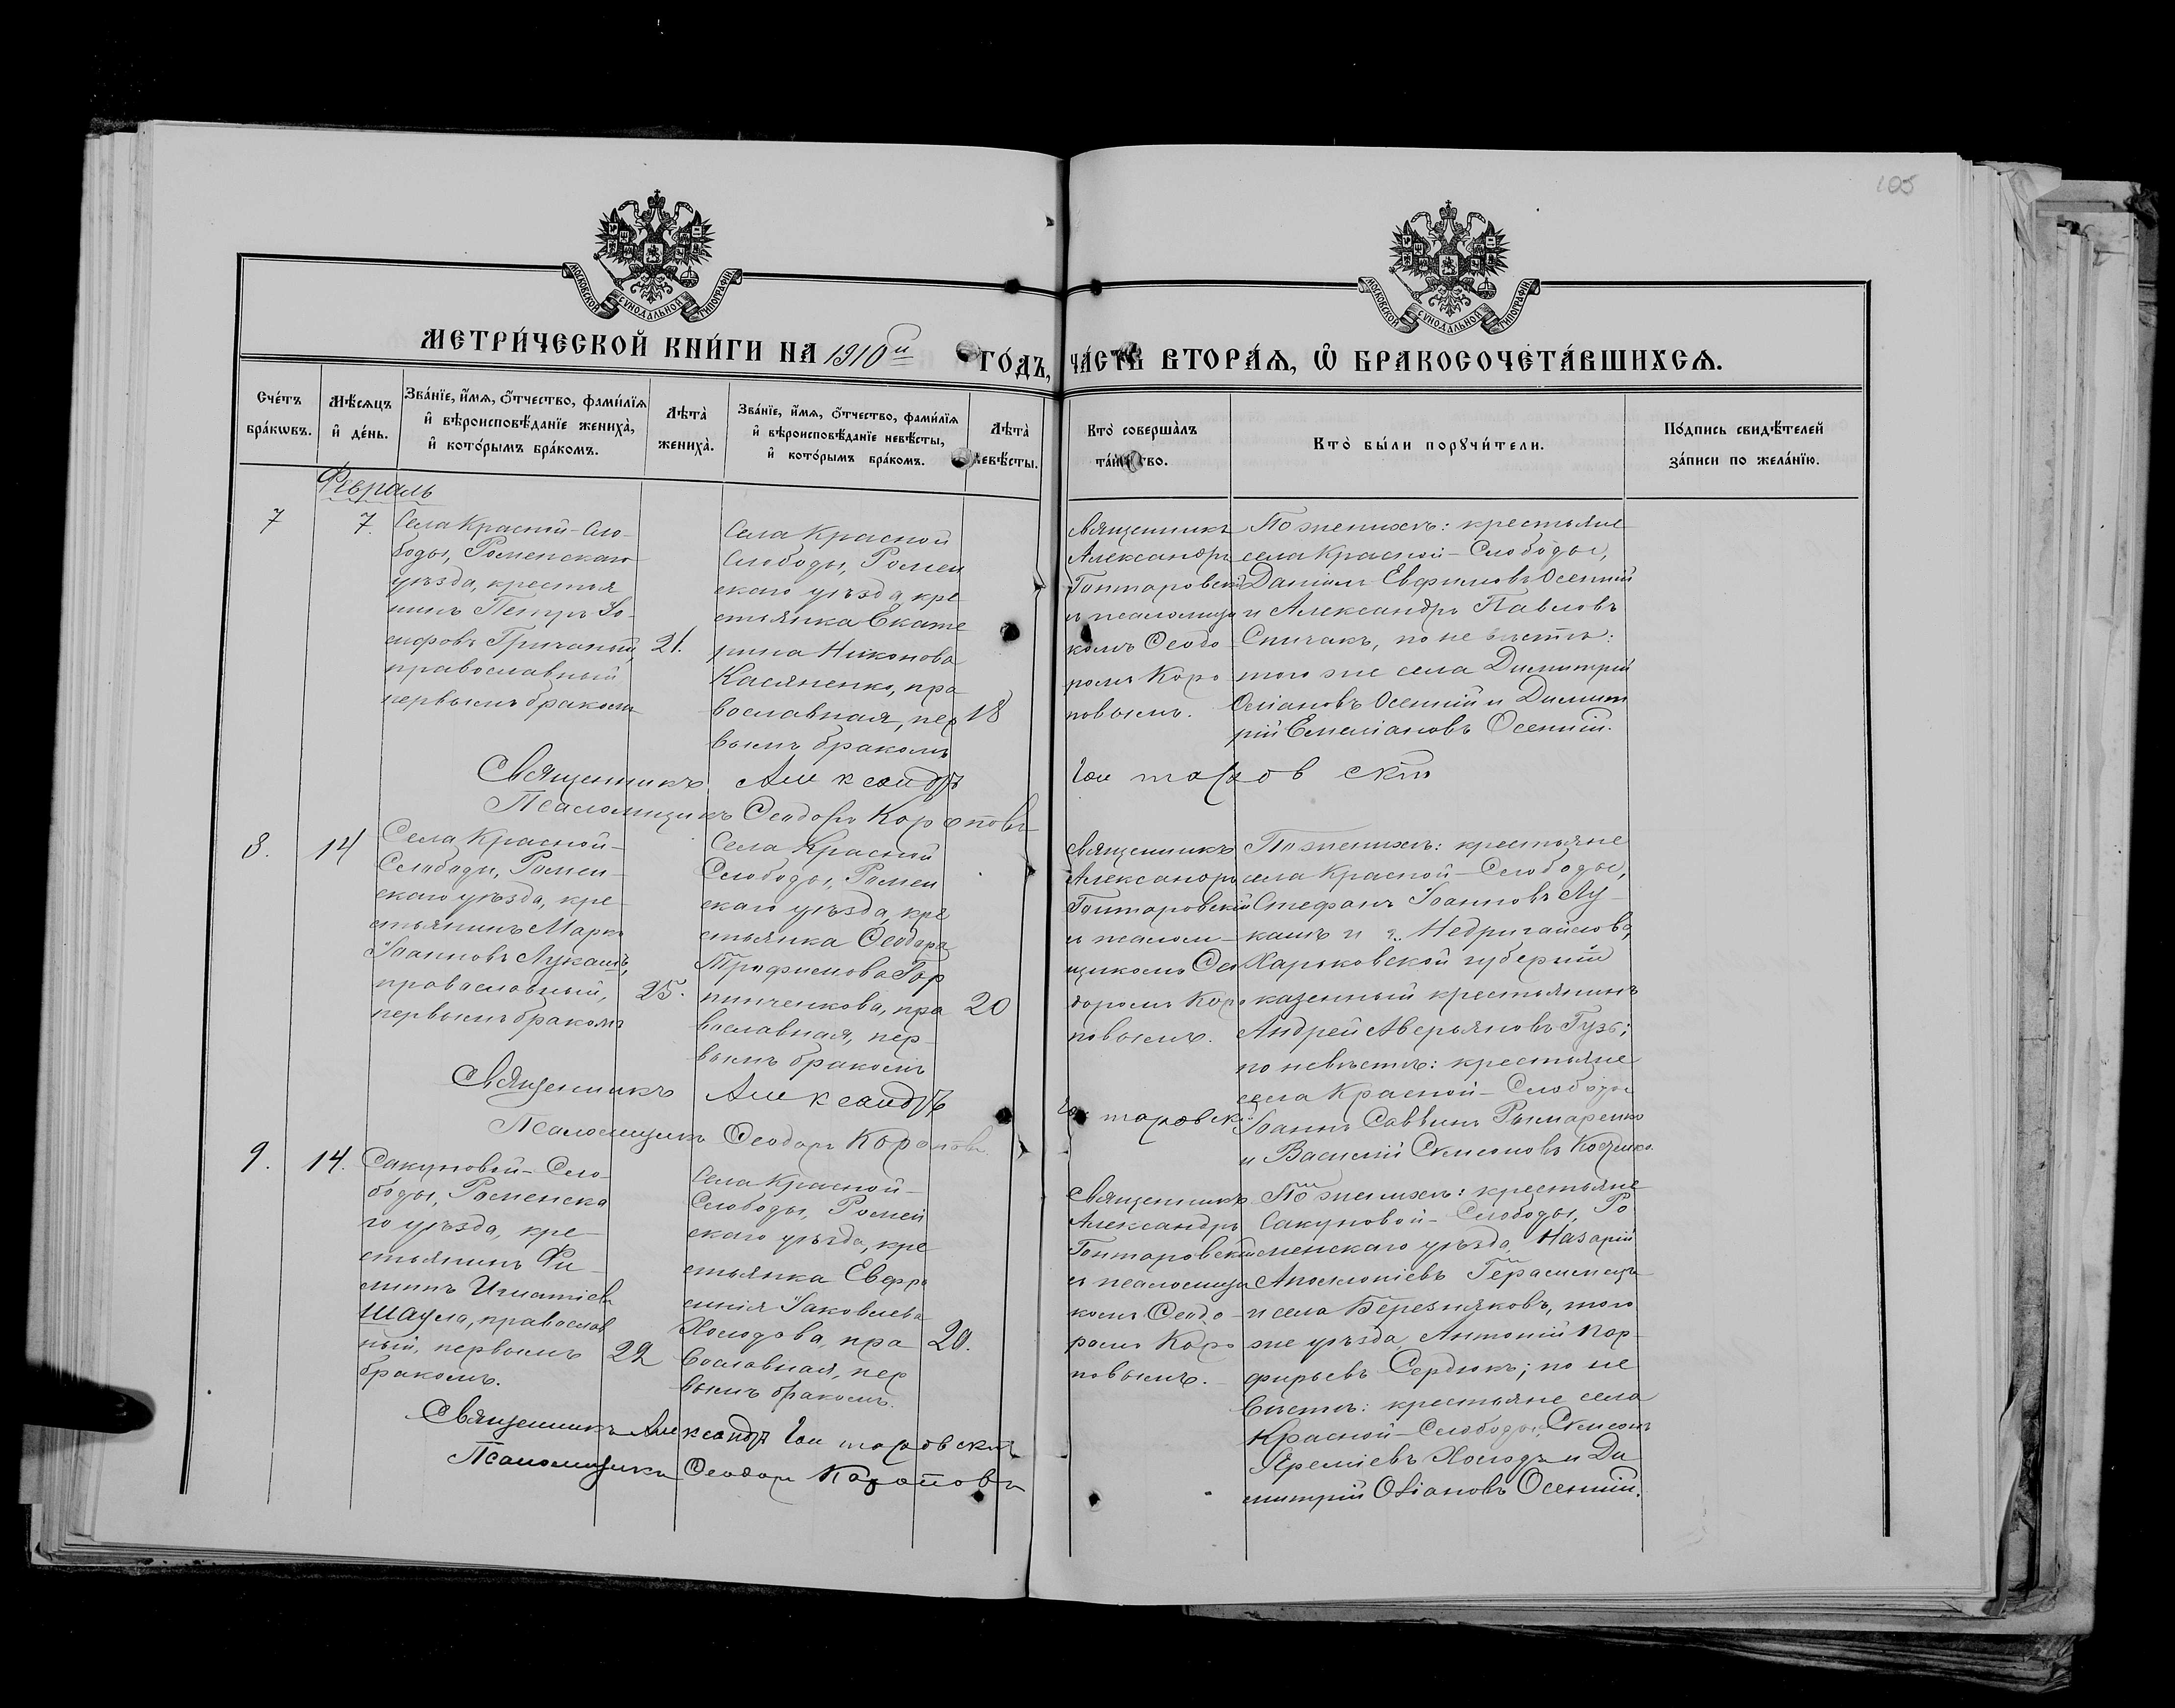 105
МОСКОВСКОЙ СѴНОДАЛЬНОЙ ТИПОГРАФІИ
МОСКОВСКОЙ СѴНОДАЛЬНОЙ ТИПОГРАФІИ
МЕТРИ́ЧЕСКОЙ КНИ́ГИ НА 1910й ГО́ДЪ,
ЧА́СТЬ ВТОРА́Ѧ, Ѽ БРАКОСОЧЕТА́ВШИХСѦ.
Сче́тъ бра́кѡвъ.
Мѣ́сѧцъ и҆ де́нь.
Зва́нїе, и҆́мѧ, ѻ҆́тчество, фами́лїѧ и҆ вѣроисповѣ́данїе жениха̀, и҆ кото́рымъ бра́комъ.
Лѣта̀ жениха̀.
Зва́нїе, и҆́мѧ, ѻ҆́тчество, фами́лїѧ и҆ вѣроисповѣ́данїе невѣ́сты, и҆ кото́рымъ бра́комъ.
Лѣта̀ невѣ́сты.
Кто̀ соверша̀лъ та́инство.
Кто̀ бы́ли порꙋчи́тели.
По́дпись свидѣ́телей за́писи по жела́нїю.
Февраль
7
7.
Села Красной-Сло-
боды, Роменскаго
уѣзда, крестья
нинъ Петръ Іо-
сифовъ Гричаный,
православный
первымъ бракомъ
21.
Села Красной
Слободы, Ромен
скаго уѣзда, кре
стьянка Екате
рина Никонова
Касяненко, пра
вославная, пер
вымъ бракомъ
18
Священникъ
Александръ
Гонтаровскій
и псаломщи
комъ Ѳеодо-
ромъ Коро
повымъ.
По женихѣ: крестьяне
села Красной-Слободы,
Даніилъ Евфимовъ Осенній
и Александръ Павловъ
Спичакъ, по невѣстѣ:
того же села Димитрій
Осіановъ Осенній и Димит
рій Емеліановъ Осенній.
Священникъ Александръ Гонтаровскій
Псаломщикъ Ѳеодоръ Короповъ
8.
14
Села Красной-
Слободы, Ромен-
скаго уѣзда, кре-
стьянинъ Маркъ
Іоанновъ Лукашъ,
православный,
первымъ бракомъ
25.
Села Красной
Слободы, Ромен
скаго уѣзда, кре
стьянка Ѳеодора
Трофимова Гор
пинченкова, пра
вославная, пер-
вымъ бракомъ
20
Священникъ
Александръ
Гонтаровскій
и псалом-
щикомъ Ѳео
доромъ Коро
повымъ.
По женихѣ: крестьяне
села Красной-Слободы,
Стефанъ Іоанновъ Лу-
кашъ и г. Недригайлова,
Харьковской губерніи
казенный крестьянинъ
Андрей Аверьяновъ Гузь;
по невѣстѣ: крестьяне
села Красной-Слободы
Іоаннъ Саввинъ Рымаренко
и Василій Симеоновъ
Священникъ Александръ Гонтаровскій
Псаломщикъ Ѳеодоръ Короповъ
9.
14.
Сакуновой-Сло-
боды, Роменска
го уѣзда, кре-
стьянинъ Фи-
липпъ Игнатіевъ
Шаула, православ
ный, первымъ
бракомъ.
22
Села Красной-
Слободы, Ромен
скаго уѣзда, кре
стьянка Евфро
синія Іаковлева
Холодова, пра
вославная, пер
вымъ бракомъ.
20.
Священникъ
Александръ
Гонтаровскій
и псаломщи
комъ Ѳеодо-
ромъ Коро
повымъ.
По женихѣ: крестьяне
Сакуновой-Слободы, Ро
менскаго уѣзда, Назарій
Аполлоніевъ Герасимецъ
и села Березняковъ, того
же уѣзда, Антоній Пор-
фирьевъ Сердюкъ; по не
вѣстѣ: крестьяне села
Красной-Слободы, Симеонъ
Іереміевъ Холодъ и Ди
митрій Осіановъ Осенній.
Священникъ Александръ Гонтаровскій
Псаломщикъ Ѳеодоръ Короповъ